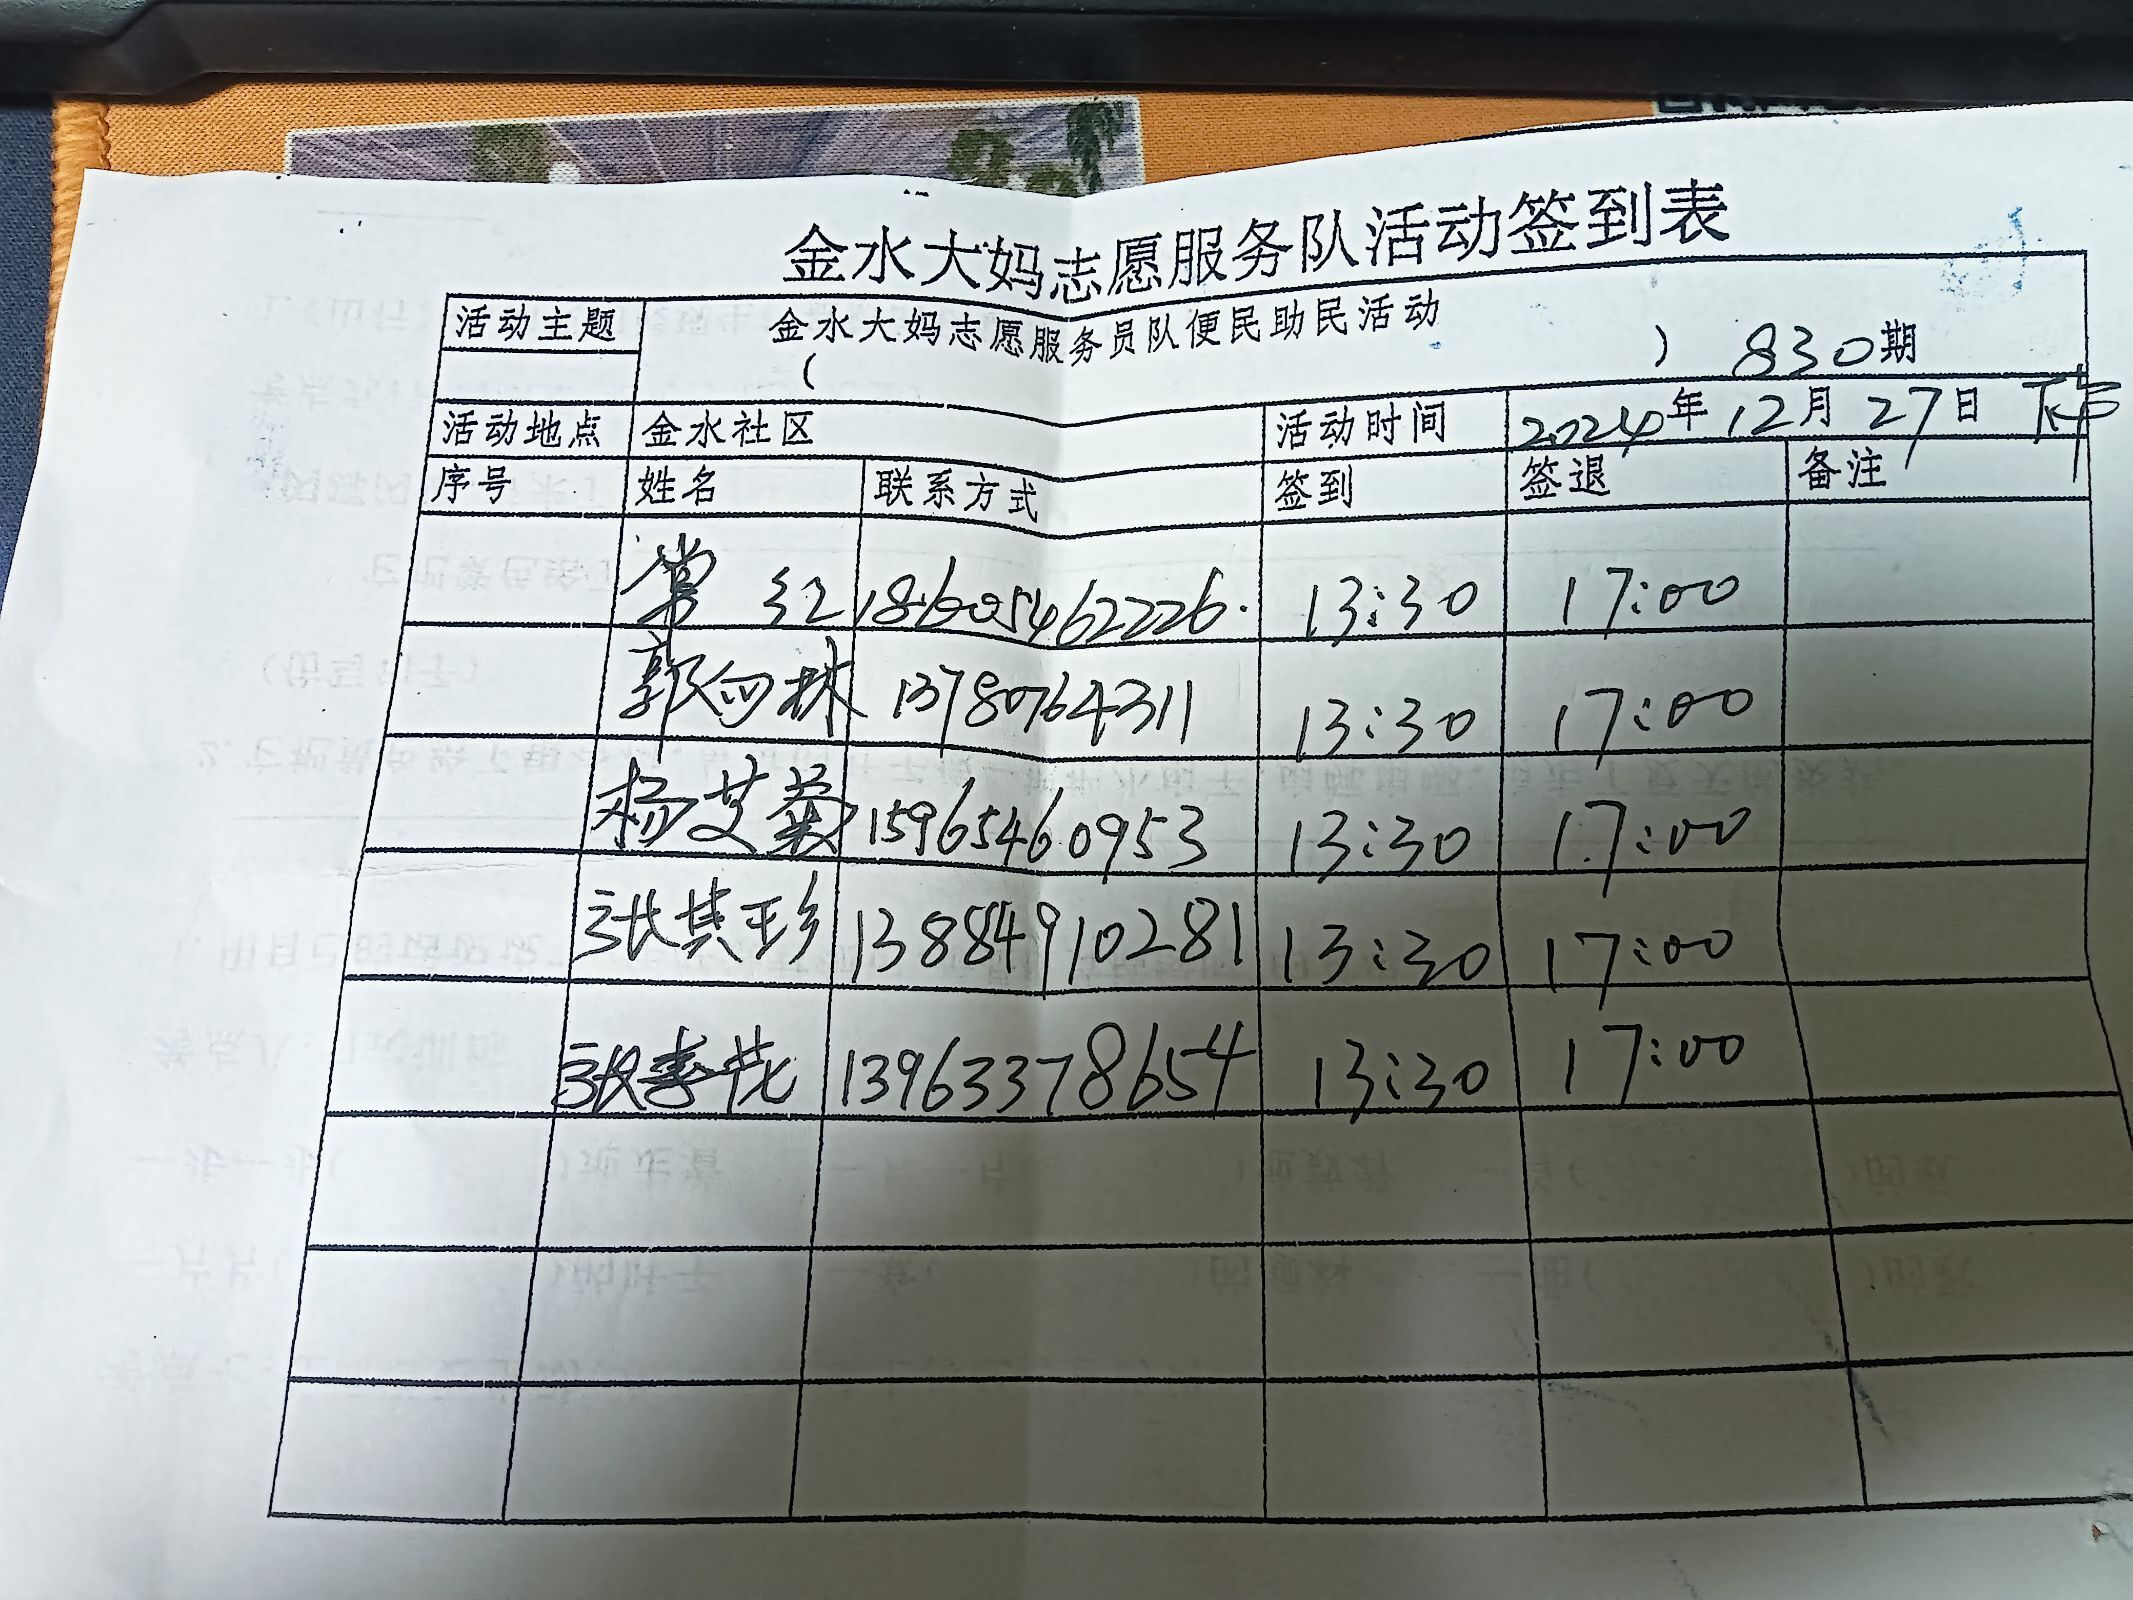 金水大妈志愿服务队活动签到表
活动主题 金水大妈志愿服务员队便民助民活动
( ) 830期
活动地点 金水社区 活动时间 2024年12月27日 下午
序号 姓名 联系方式 签到 签退 备注
常红 18605462226. 13:30 17:00
郭四林 13780764311 13:30 17:00
杨艾菊 15965460953 13:30 17:00
张其珍 13884910281 13:30 17:00
张春花 13963378654 13:30 17:00